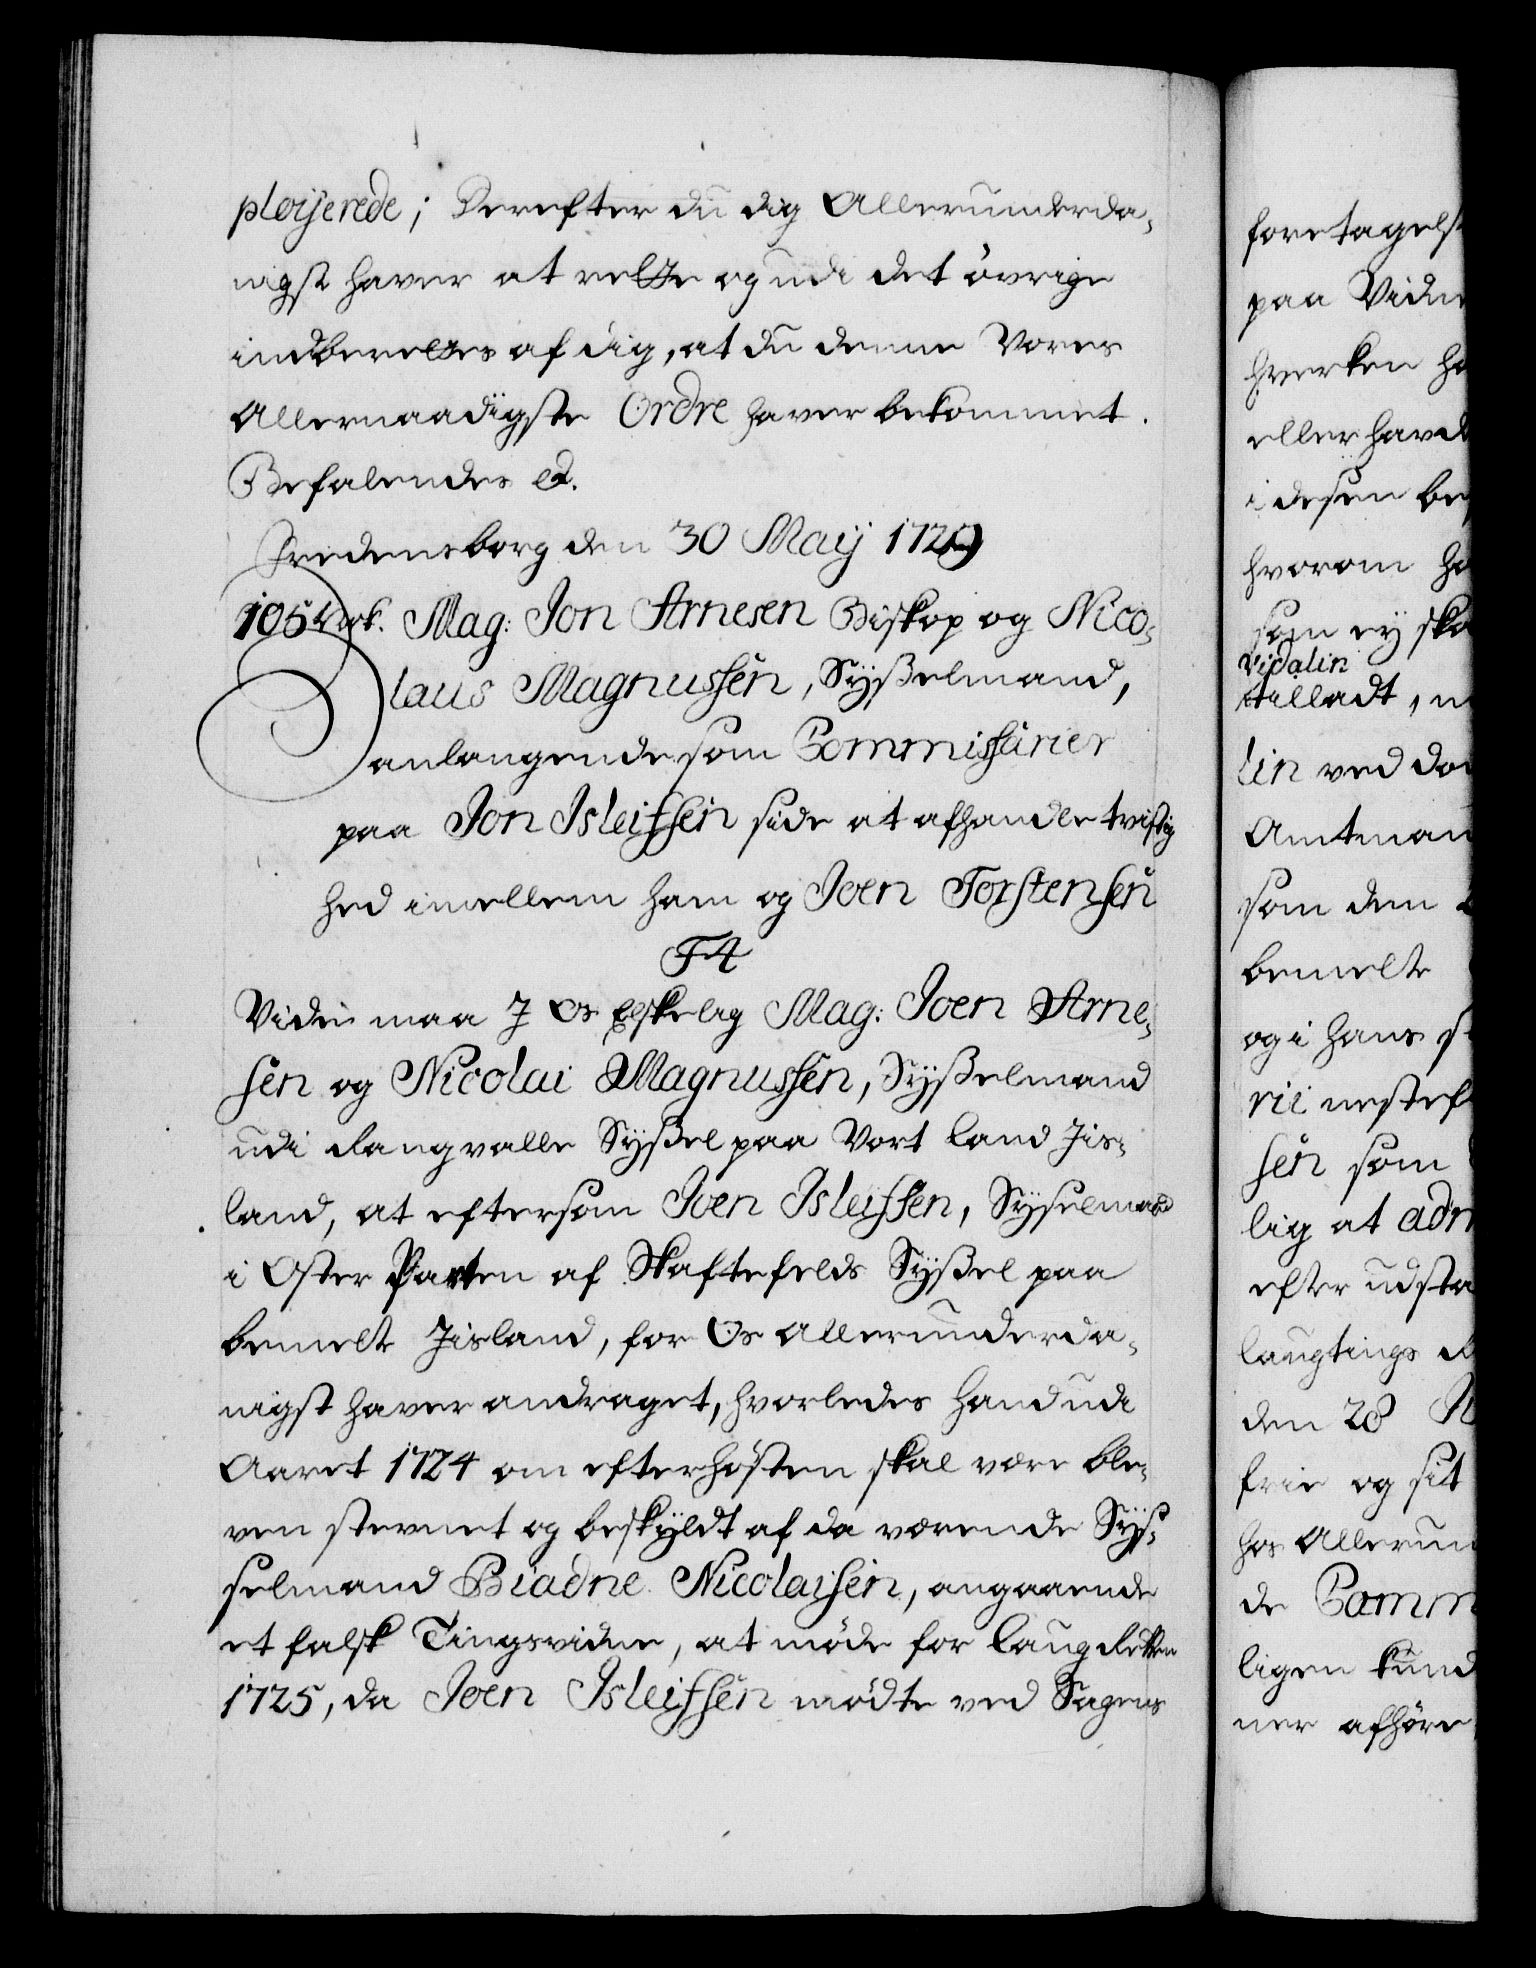 ployerede; Derefter du dig Allerunderda-
nigst haver at rette og udi det övrige
indberettes af dig, at du denne Vores
Allernaadigste Ordre haver bekommet.
Befalendes &.
Fredensborg den 30 Maij 1729
105 Mag: Jon Arnesen Biskop og Nico-
laus Magnussen, Sysselmand,
anlangende som Commissarier
paa Jon Isleifsen side at afhandle tvistig
hed imellem ham og Joen Torstensen
F4
Viden maa I Os Elskelig Mag: Joen Arne-
sen og Nicolai Magnussen, Sysselmand
udi Rangvalle Syssel paa Vort Land Jis-
land, at eftersom Joen Isleifsen, Syselmand
i Oster Parten af Skaftefelds Syssel paa
bemelte Jisland, for Os Allerunderda-
nigst haver andraget, hvorledes hand udi
Aaret 1724 om efterhösten skal være ble-
ven stevnet og beskyldt af da værende Sys-
selmand Biadne Nicolaisen, angaaende
et falsk Tingsvidne, at møde for Laugretten
1725, da Joen Isleifsen mödte ved Sagens
foretagels
paa Vidne
hverken ha
eller havde
i desen be
hvorom ha
som ey ska
Vidalin
tilladt, m
lin ved do
Amtman
som dem
bemelte
og i hans s
rii nestef
sen som
lig at adm
efter udsta
laugtings
den 28
frie og sit
hos Allerun
de Comm
ligen kund
ner afhöre